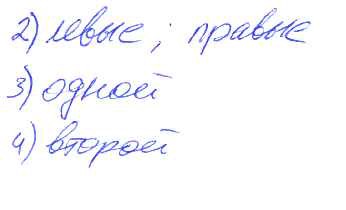 2) левые; правые
3) одной
4) второй